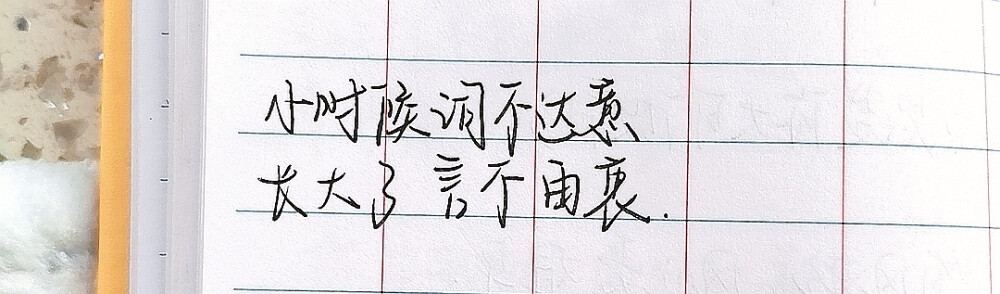 小时候词不达意
长大了言不由衷.